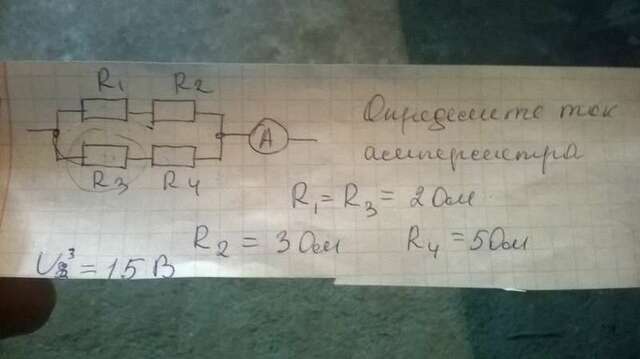 R1 R2
R3 R4
A
Определите ток
амперметра
R1 = R3 = 2 Ом
R2 = 3 Ом R4 = 5 Ом
U3 = 15 В